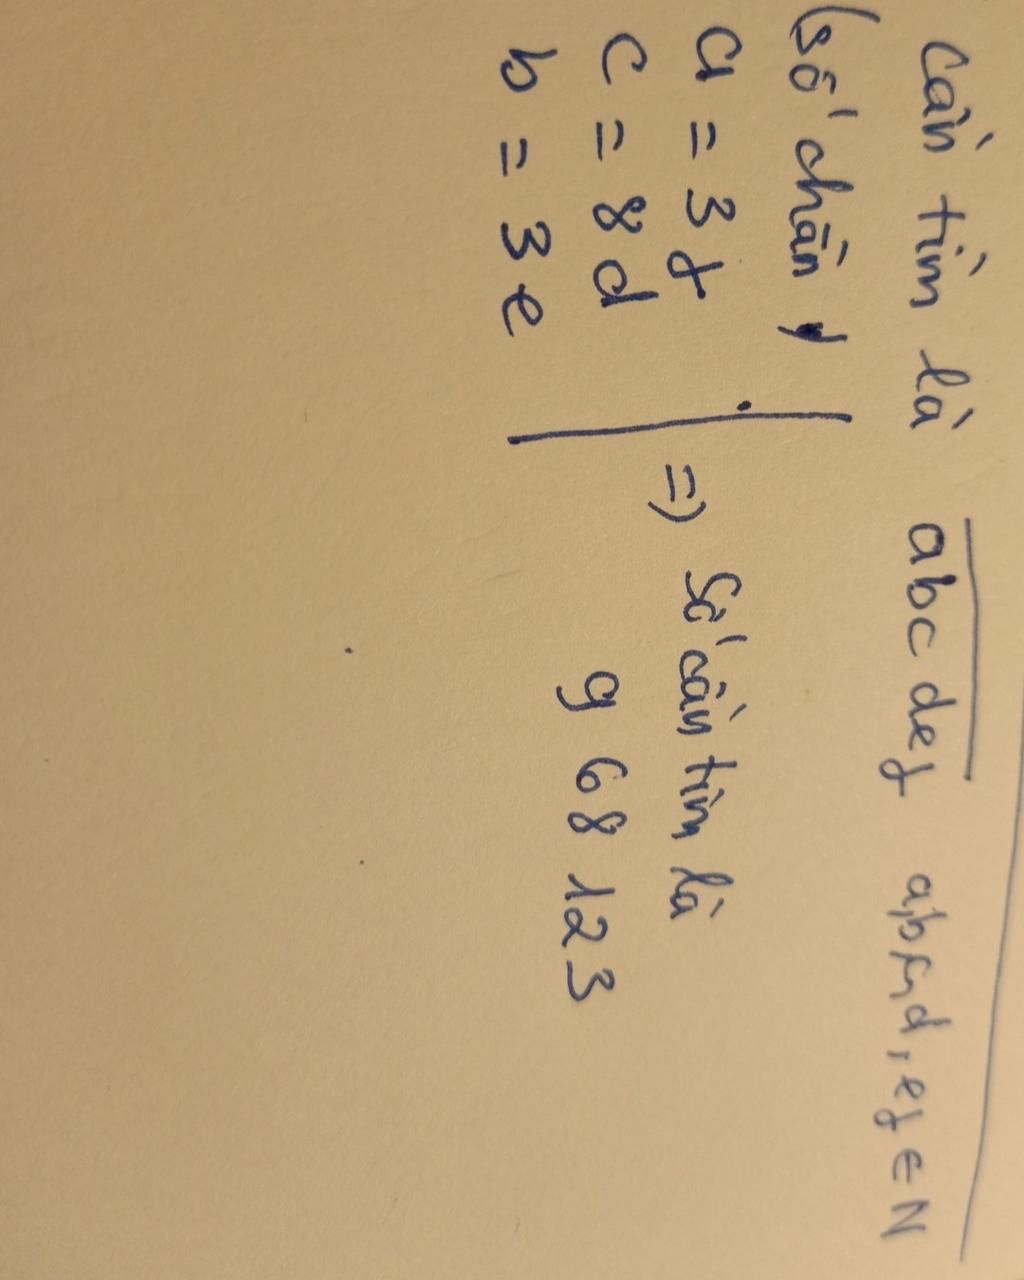 cần tìm là abcdef a,b,c,d,e,f ∈ N
(số chẵn)
a = 3f
c = 8d
b = 3e
=) Số cần tìm là
9 6 8 1 2 3